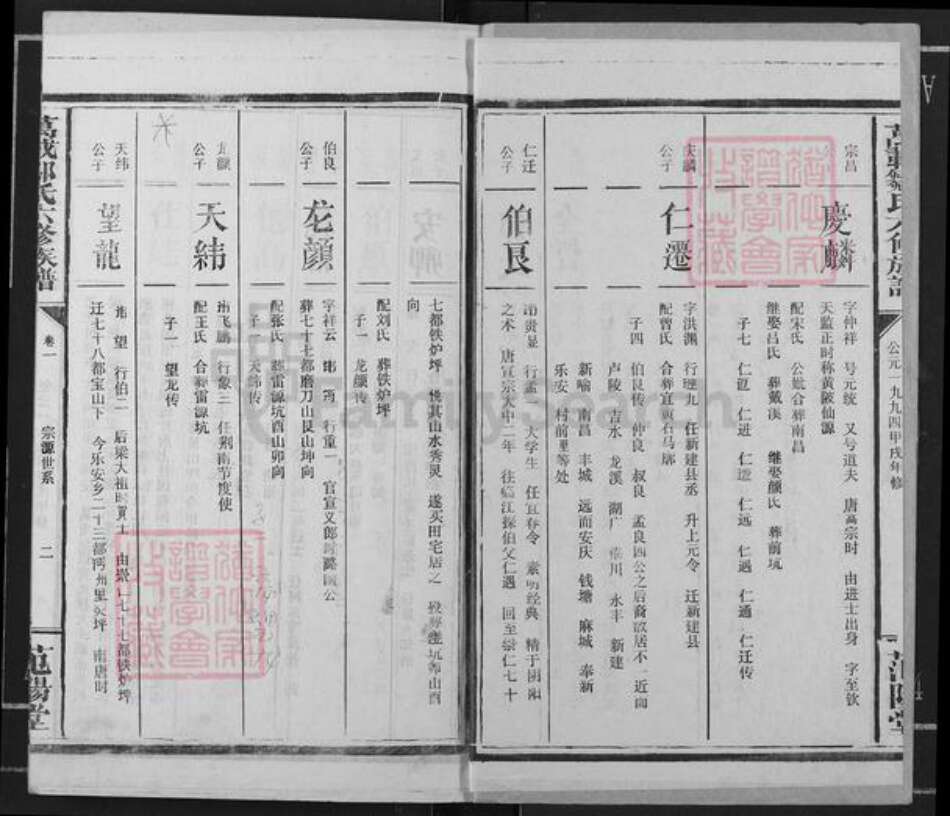 公元一九九四甲戌年修
宗昌
慶麟
字仲祥 号元统 又号道夫 唐高宗时 由进士出身 字至钦
天监正时称黄陂仙源
配宋氏 公妣合葬南昌
继娶吕氏 葬戴溪 继娶颜氏 葬前坑
子七 仁迈 仁进 仁远 仁遇 仁通 仁迁传
庆麟公子
仁遷
字洪渊 行 九 任新建县丞 升上元令 迁新建县
配曾氏 合葬宜黄石马廓
子四 伯良传 仲良 叔良 孟良四公之后裔散居不一近而
卢陵 吉水 龙溪 湖广 临川 永丰 新建
新喻 南昌 丰城 远而安庆 钱塘 麻城 奉新
乐安 村前里等处
仁迁公子
伯良
讳贵显 行孟 大学生 任宜春令 素明经典 精于阴阳
之术 唐宣宗大中二年 往临江探伯父仁遇 回至崇仁七十
七都铁炉坪 悦其山水秀灵 遂买田宅居之 殁葬 坑 山酉
向
配刘氏 葬铁炉坪
子一 龙颜传
伯良公子
龙颜
字祥云 讳霄 行重一 官宣义郎封 公
葬七十七都磨刀山艮山坤向
配张氏 葬雷源坑酉山卯向
子一 天纬传
龙颜公子
天緯
讳飞鹏 行象三 任荆南节度使
配王氏 合葬雷源坑
子一 望龙传
天纬公子
望龍
讳望 行伯二 后梁大祖时 士 由崇仁七十七都铁炉坪
迁七十八都宝山下 今乐安乡二十三都 州里 坪 南唐时
萬載鄒氏六修族譜
卷一
宗源世系
二
范陽堂